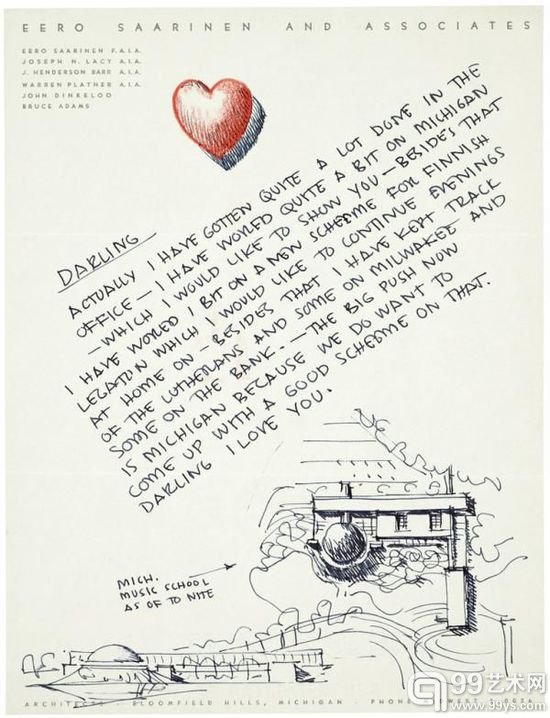 EERO SAARINEN AND ASSOCIATES
EERO SAARINEN F.A.I.A.
JOSEPH N. LACY A.I.A.
J. HENDERSON BARR A.I.A.
WARREN PLATNER A.I.A.
JOHN DINKELOO
BRUCE ADAMS
DARLING
ACTUALLY I HAVE GOTTEN QUITE A LOT DONE IN THE
OFFICE — I HAVE WORKED QUITE A BIT ON MICHIGAN
— WHICH I WOULD LIKE TO SHOW YOU — BESIDES THAT
I HAVE WORKED 1 BIT ON A NEW SCHEME FOR FINNISH
LEGATION WHICH I WOULD LIKE TO CONTINUE EVENINGS
AT HOME ON — BESIDES THAT I HAVE KEPT TRACK
OF THE LUTHERANS AND SOME ON MILWAKEE AND
SOME ON THE BANK. — THE BIG PUSH NOW
IS MICHIGAN BECAUSE WE DO WANT TO
COME UP WITH A GOOD SCHEME ON THAT.
DARLING I LOVE YOU.
MICH.
MUSIC SCHOOL
AS OF TO NITE
ARCHITECTS · BLOOMFIELD HILLS, MICHIGAN · PHONE
99艺术网
www.99ys.com